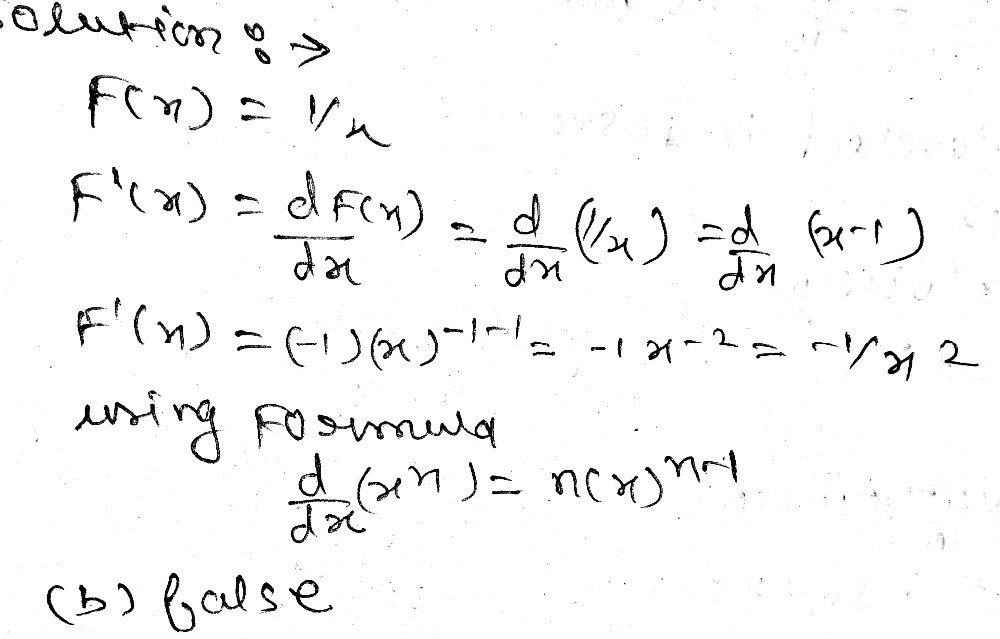 olution :→
F(x) = 1/x
F'(x) = dF(x)/dx = d/dx (1/x) = d/dx (x-1)
F'(x) = (-1)(x)^-1-1 = -1 x-2 = -1/x 2
using Formula
d/dx (xn) = n(x)^n-1
(b) false